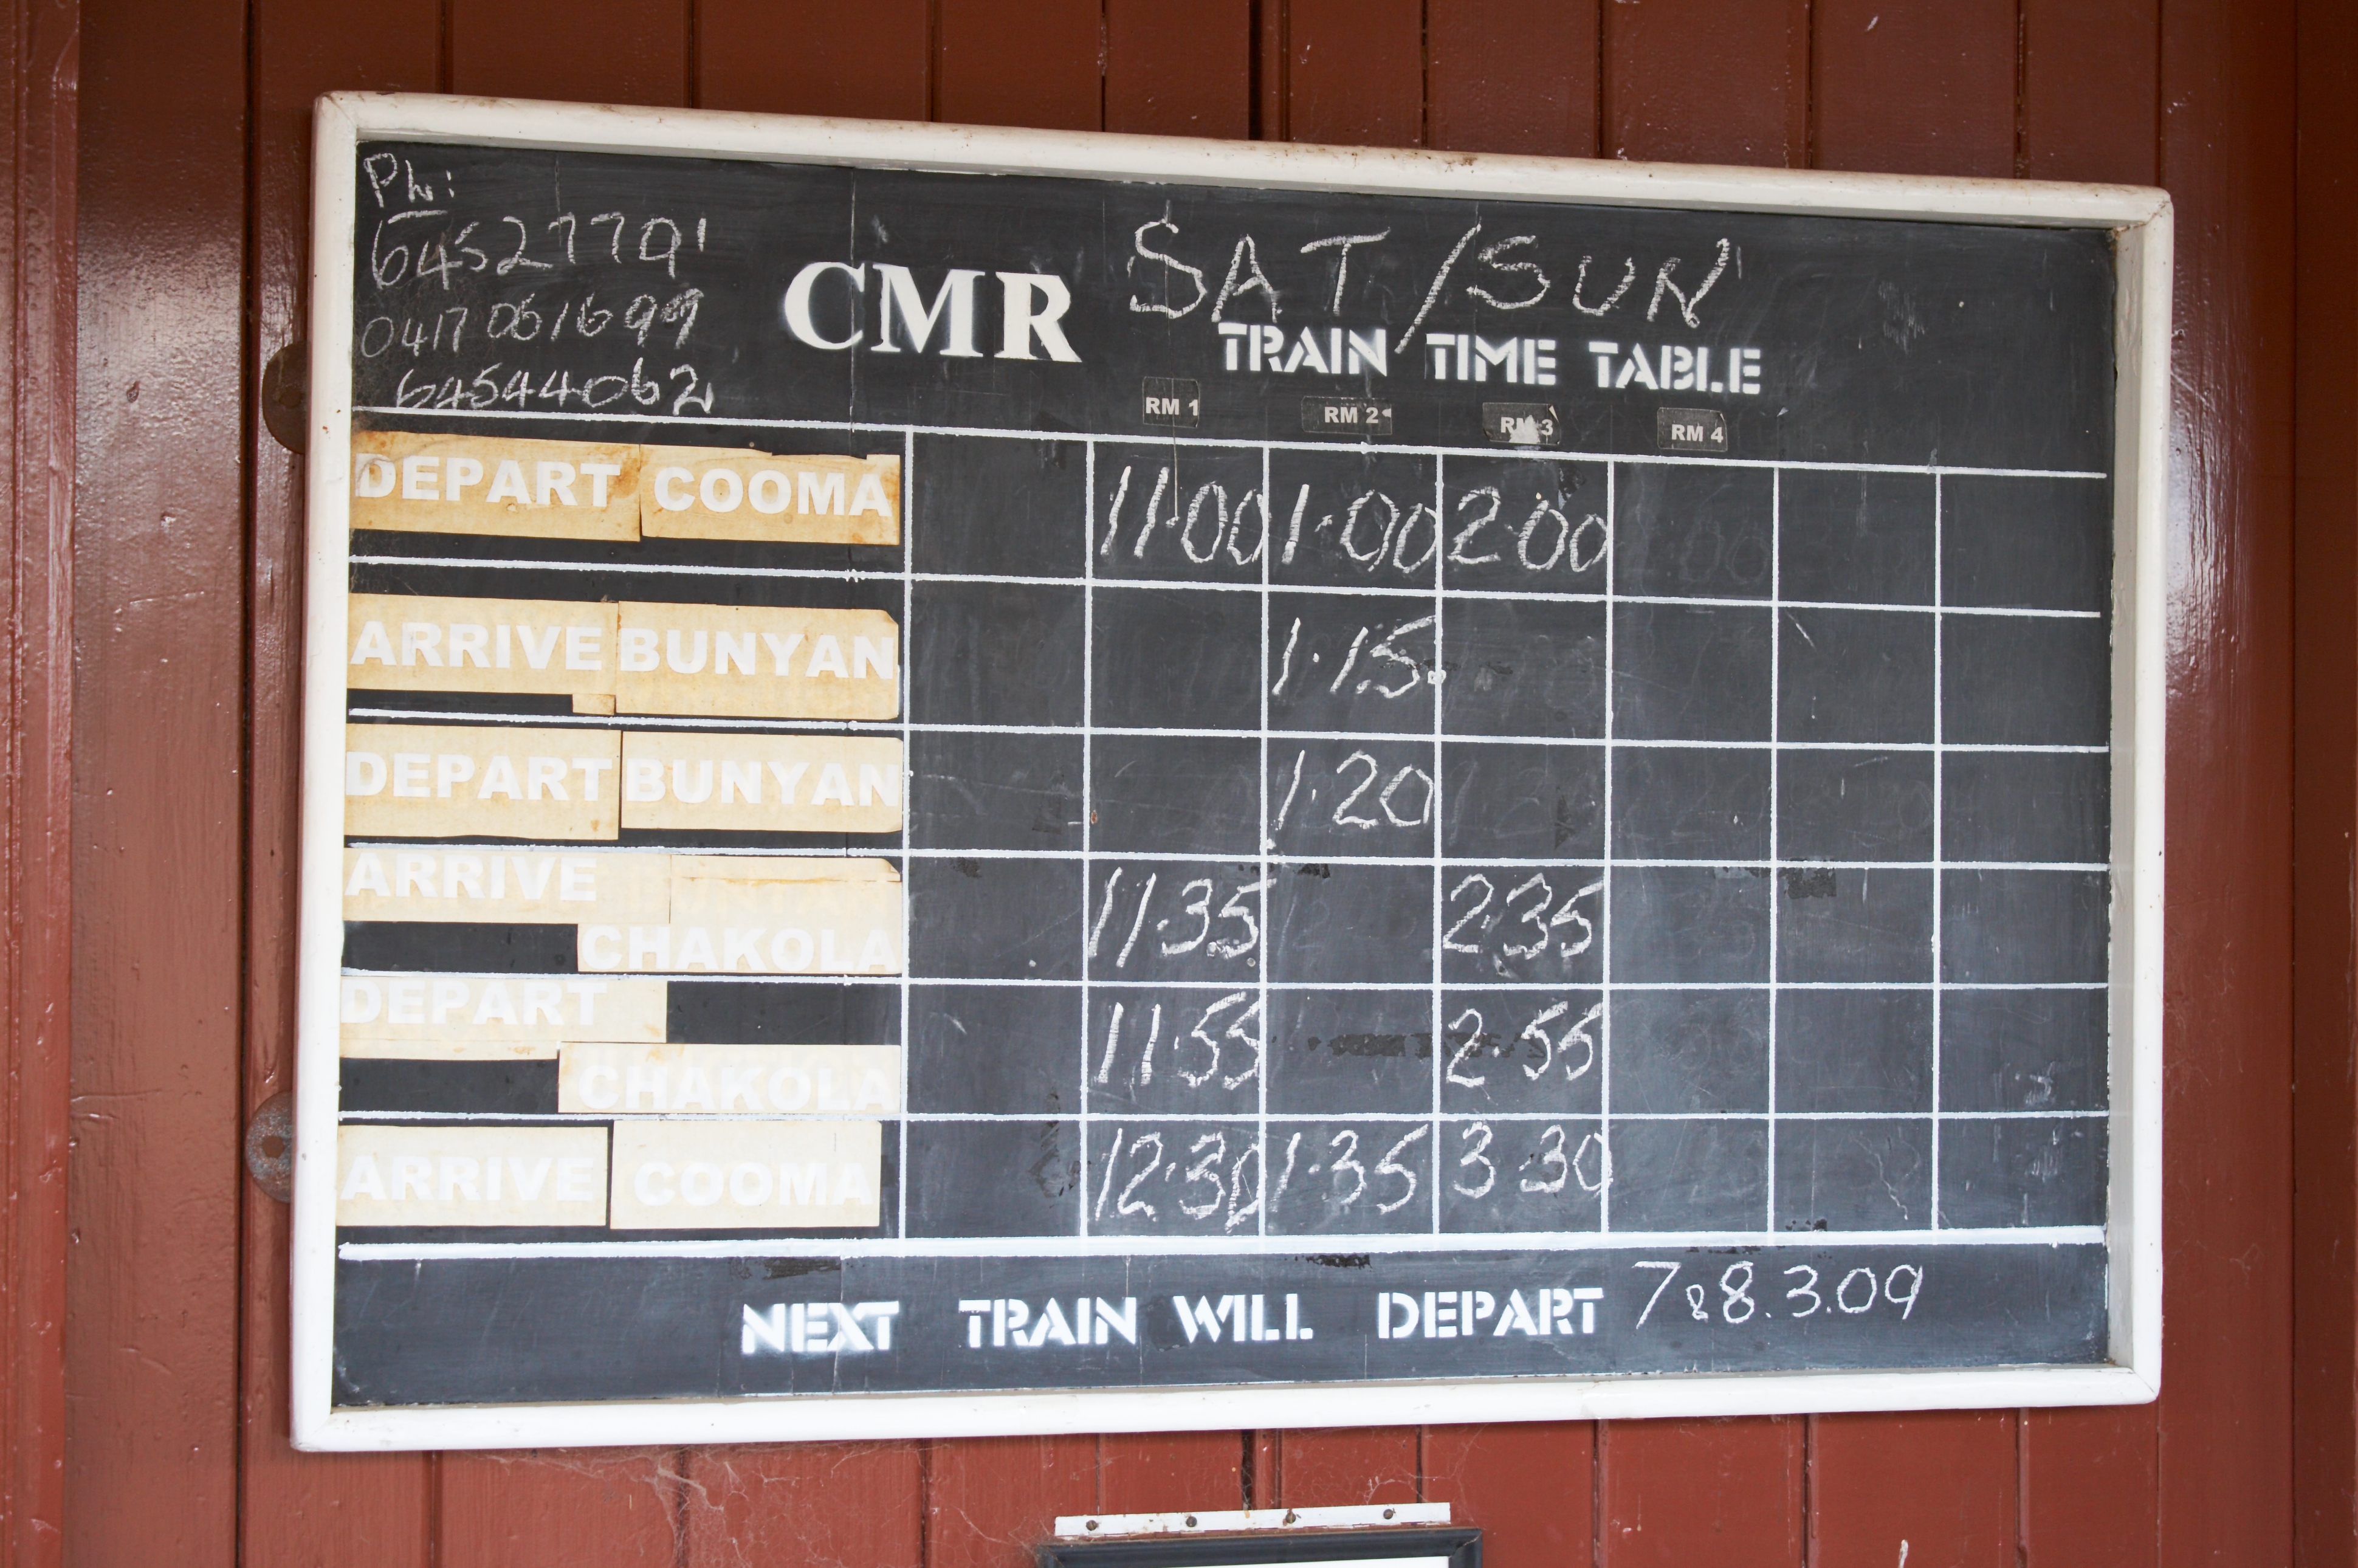 Ph:
64527791
0417 051699
64544062
CMR SAT/SUN
TRAIN TIME TABLE
RM 1 RM 2 RM 3 RM 4
DEPART COOMA 11·00 1·00 2·00
ARRIVE BUNYAN 1·15
DEPART BUNYAN 1·20
ARRIVE CHAKOLA 11·35 2·35
DEPART CHAKOLA 11·55 2·55
ARRIVE COOMA 12·30 1·35 3·30
NEXT TRAIN WILL DEPART 7&8.3.09